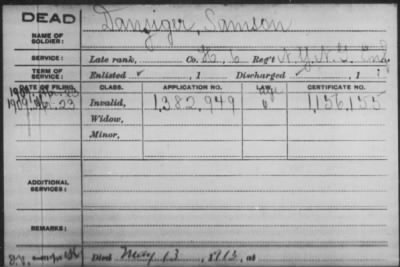 DEAD
NAME OF SOLDIER: Danziger, Samson
SERVICE: Late rank, Co. 6 Reg't N.Y.N.G. Inf.
TERM OF SERVICE: Enlisted , 1 Discharged , 1
DATE OF FILING. CLASS. APPLICATION NO. LAW. CERTIFICATE NO.
23 Invalid, 1,382,949 1,156,155
Widow,
Minor,
ADDITIONAL SERVICES:
REMARKS:
Died May 13, 1913, at